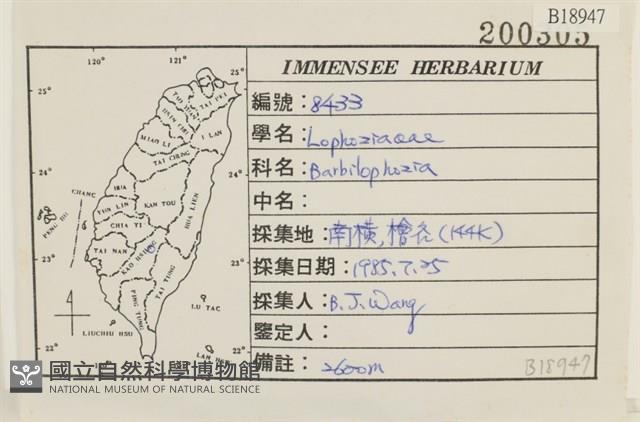 B18947
200305
IMMENSEE HERBARIUM
編號：8433
學名：Lophoziaceae
科名：Barbilophozia
中名：
採集地：南橫,檜谷(144K)
採集日期：1985.7.25
採集人：B.J.Wang
鑒定人：
備註：2600m
B18947
120° 121°
25° 25°
TAO YUAN
TAI PEI
HSIN CHU
I LAN
MIAO LI
TAI CHUNG
24° 24°
CHANG HUA
HUA LIEN
YUN LIN
NAN TOU
PENG HU
CHIA YI
TAI NAN
KAO HSIUNG
23° 23°
TAI TUNG
PING TUNG
LU TAO
LIUCHIU HSU
LAN HSU
22° 22°
國立自然科學博物館
NATIONAL MUSEUM OF NATURAL SCIENCE